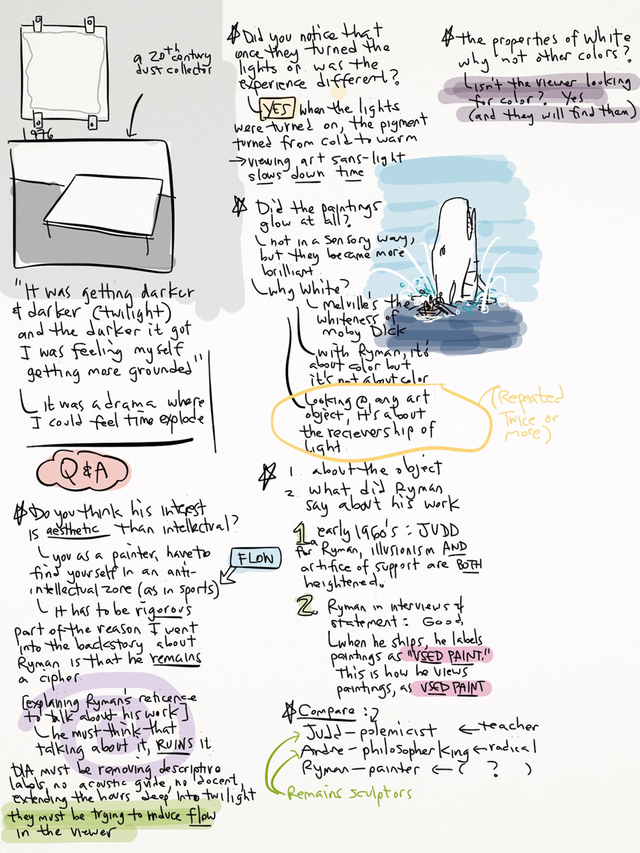 a 20th century
dust collector
1976
"It was getting darker
& darker (twilight)
and the darker it got
I was feeling myself
getting more grounded"
It was a drama where
I could feel time explode
Q&A
Do you think his interest
is aesthetic than intellectual?
you as a painter, have to
find yourself in an anti-
intellectual zone (as in sports)
FLOW
It has to be rigorous
part of the reason I went
into the backstory about
Ryman is that he remains
a cipher
[explaining Ryman's reticence
to talk about his work]
he must think that
talking about it, RUINS it.
DIA must be removing descriptive
labels, no acoustic guide, no docent,
extending the hours deep into twilight
they must be trying to induce flow
in the viewer
Did you notice that
once they turned the
lights on was the
experience different?
YES when the lights
were turned on, the pigment
turned from cold to warm
→ viewing art sans-light
slows down time
Did the paintings
glow at all?
not in a sensory way,
but they became more
brilliant.
why white?
Melville's the
whiteness of
moby Dick
with Ryman, it's
about color but
it's not about color
Looking @ any art
object, it's about
the recievership of
light
(Repeated
Twice or
more)
1. about the object
2. what did Ryman
say about his work
1. early 1960's: JUDD
for Ryman, illusionism AND
artifice of support are BOTH
heightened.
2. Ryman in interviews &
statement: Good,
when he ships, he labels
paintings as "USED PAINT."
This is how he views
paintings, as USED PAINT
Compare:
Judd-polemicist ← teacher
Andre-philosopher king ← radical
Ryman-painter ← ( ? )
Remains sculptors
the properties of White
why not other colors?
isn't the viewer looking
for color? Yes
(and they will find them)